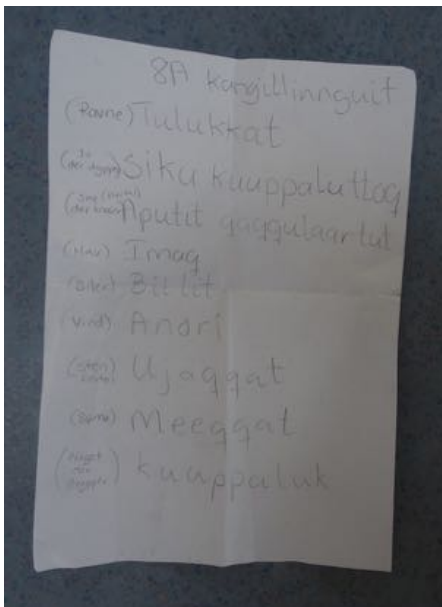 8A kangillinnguit
(Ravne) Tulukkat
(Is der) Siku kuuppaluttoq
(Sne der) Aputit qaqqulaartut
(Hav) Imaq
(Biler) Biilit
(Vind) Anori
(sten) Ujaqqat
(Børn) Meeqqat
(Noget der drypper) kuuppaluk